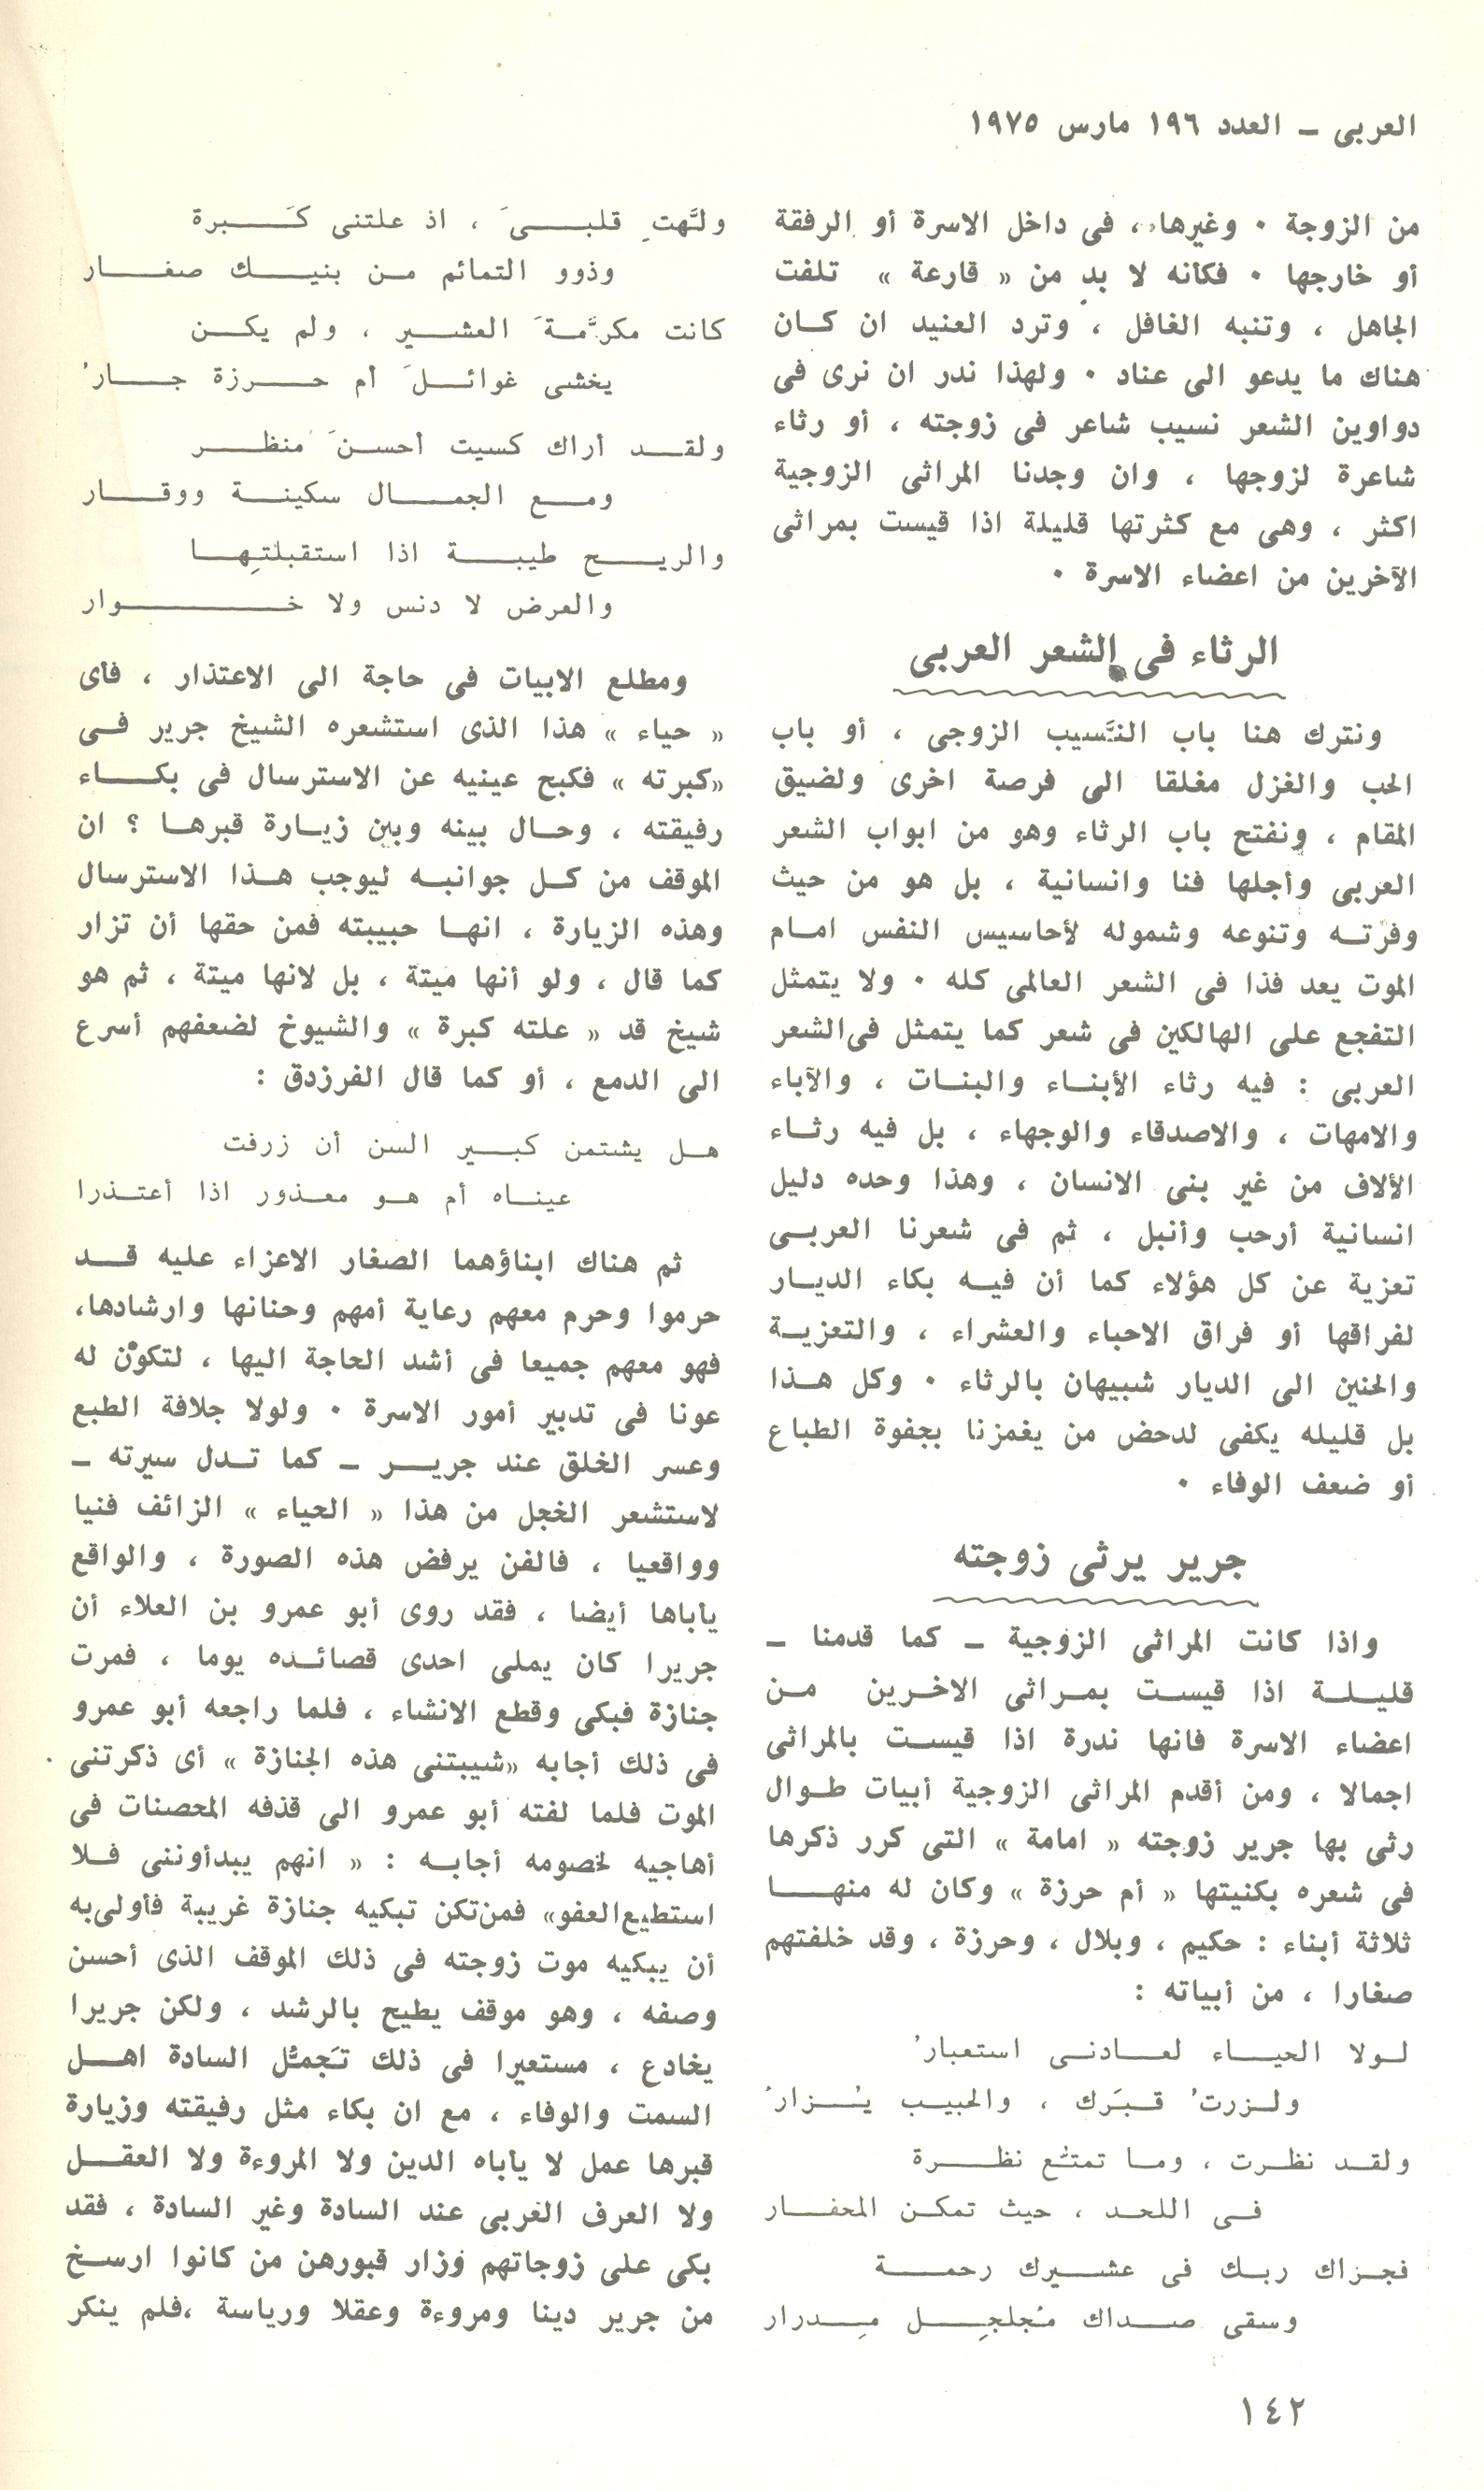 العربى ـ العدد ١٩٦ مارس ١٩٧٥
من الزوجة ٠ وغيرها ، فى داخل الاسرة أو الرفقة
أو خارجها ٠ فكأنه لا بد من « قارعة » تلفت
الجاهل ، وتنبه الغافل ، وترد العنيد ان كان
هناك ما يدعو الى عناد ٠ ولهذا ندر ان نرى فى
دواوين الشعر نسيب شاعر فى زوجته ، أو رثاء
شاعرة لزوجها ، وان وجدنا المراثى الزوجية
اكثر ، وهى مع كثرتها قليلة اذا قيست بمراثى
الآخرين من اعضاء الاسرة ٠
الرثاء فى الشعر العربى
ونترك هنا باب النَّسيب الزوجى ، أو باب
الحب والغزل مغلقا الى فرصة اخرى ولضيق
المقام ، ونفتح باب الرثاء وهو من ابواب الشعر
العربى وأجلها فنا وانسانية ، بل هو من حيث
وفرته وتنوعه وشموله لأحاسيس النفس امام
الموت يعد فذا فى الشعر العالمى كله ٠ ولا يتمثل
التفجع على الهالكين فى شعر كما يتمثل فى الشعر
العربى : فيه رثاء الأبناء والبنات ، والآباء
والامهات ، والاصدقاء والوجهاء ، بل فيه رثاء
الألاف من غير بنى الانسان ، وهذا وحده دليل
انسانية أرحب وأنبل ، ثم فى شعرنا العربى
تعزية عن كل هؤلاء كما أن فيه بكاء الديار
لفراقها أو فراق الاحباء والعشراء ، والتعزية
والحنين الى الديار شبيهان بالرثاء ٠ وكل هذا
بل قليله يكفى لدحض من يغمزنا بجفوة الطباع
أو ضعف الوفاء ٠
جرير يرثى زوجته
واذا كانت المراثى الزوجية ـ كما قدمنا ـ
قليلة اذا قيست بمراثى الاخرين من
اعضاء الاسرة فانها ندرة اذا قيست بالمراثى
اجمالا ، ومن أقدم المراثى الزوجية أبيات طوال
رثى بها جرير زوجته « امامة » التى كرر ذكرها
فى شعره بكنيتها « أم حرزة » وكان له منها
ثلاثة أبناء : حكيم ، وبلال ، وحرزة ، وقد خلفتهم
صغارا ، من أبياته :
لولا الحياء لعادنى استعبارُ
ولزرتُ قبرَك ، والحبيب يُزارُ
ولقد نظرت ، وما تمتُّع نظرة
فى اللحد ، حيث تمكن المحفار
فجزاك ربك فى عشيرك رحمة
وسقى صداك مُجلجِل مِدرار
ولَّهتِ قلبىَ ، اذ علتنى كَبرة
وذوو التمائم من بنيك صغار
كانت مكرَّمةَ العشير ، ولم يكن
يخشى غوائلَ أم حرزة جارُ
ولقد أراك كسيت أحسنَ منظر
ومع الجمال سكينة ووقار
والريح طيبة اذا استقبلتِها
والعرض لا دنس ولا خوار
ومطلع الابيات فى حاجة الى الاعتذار ، فأى
« حياء » هذا الذى استشعره الشيخ جرير فى
«كبرته » فكبح عينيه عن الاسترسال فى بكاء
رفيقته ، وحال بينه وبين زيارة قبرها ؟ ان
الموقف من كل جوانبه ليوجب هذا الاسترسال
وهذه الزيارة ، انها حبيبته فمن حقها أن تزار
كما قال ، ولو أنها ميتة ، بل لانها ميتة ، ثم هو
شيخ قد « علته كبرة » والشيوخ لضعفهم أسرع
الى الدمع ، أو كما قال الفرزدق :
هل يشتمن كبير السن أن زرفت
عيناه أم هو معذور اذا أعتذرا
ثم هناك ابناؤهما الصغار الاعزاء عليه قد
حرموا وحرم معهم رعاية أمهم وحنانها وارشادها،
فهو معهم جميعا فى أشد الحاجة اليها ، لتكون له
عونا فى تدبير أمور الاسرة ٠ ولولا جلافة الطبع
وعسر الخلق عند جرير ـ كما تدل سيرته ـ
لاستشعر الخجل من هذا « الحياء » الزائف فنيا
وواقعيا ، فالفن يرفض هذه الصورة ، والواقع
يأباها أيضا ، فقد روى أبو عمرو بن العلاء أن
جريرا كان يملى احدى قصائده يوما ، فمرت
جنازة فبكى وقطع الانشاء ، فلما راجعه أبو عمرو
فى ذلك أجابه «شيبتنى هذه الجنازة » أى ذكرتنى
الموت فلما لفته أبو عمرو الى قذفه المحصنات فى
أهاجيه لخصومه أجابه : « انهم يبدأوننى فلا
استطيع العفو» فمن تكن تبكيه جنازة غريبة فأولى به
أن يبكيه موت زوجته فى ذلك الموقف الذى أحسن
وصفه ، وهو موقف يطيح بالرشد ، ولكن جريرا
يخادع ، مستعيرا فى ذلك تَجمُّل السادة اهل
السمت والوفاء ، مع ان بكاء مثل رفيقته وزيارة
قبرها عمل لا يأباه الدين ولا المروءة ولا العقل
ولا العرف العربى عند السادة وغير السادة ، فقد
بكى على زوجاتهم وزار قبورهن من كانوا ارسخ
من جرير دينا ومروءة وعقلا ورياسة ،فلم ينكر
١٤٢